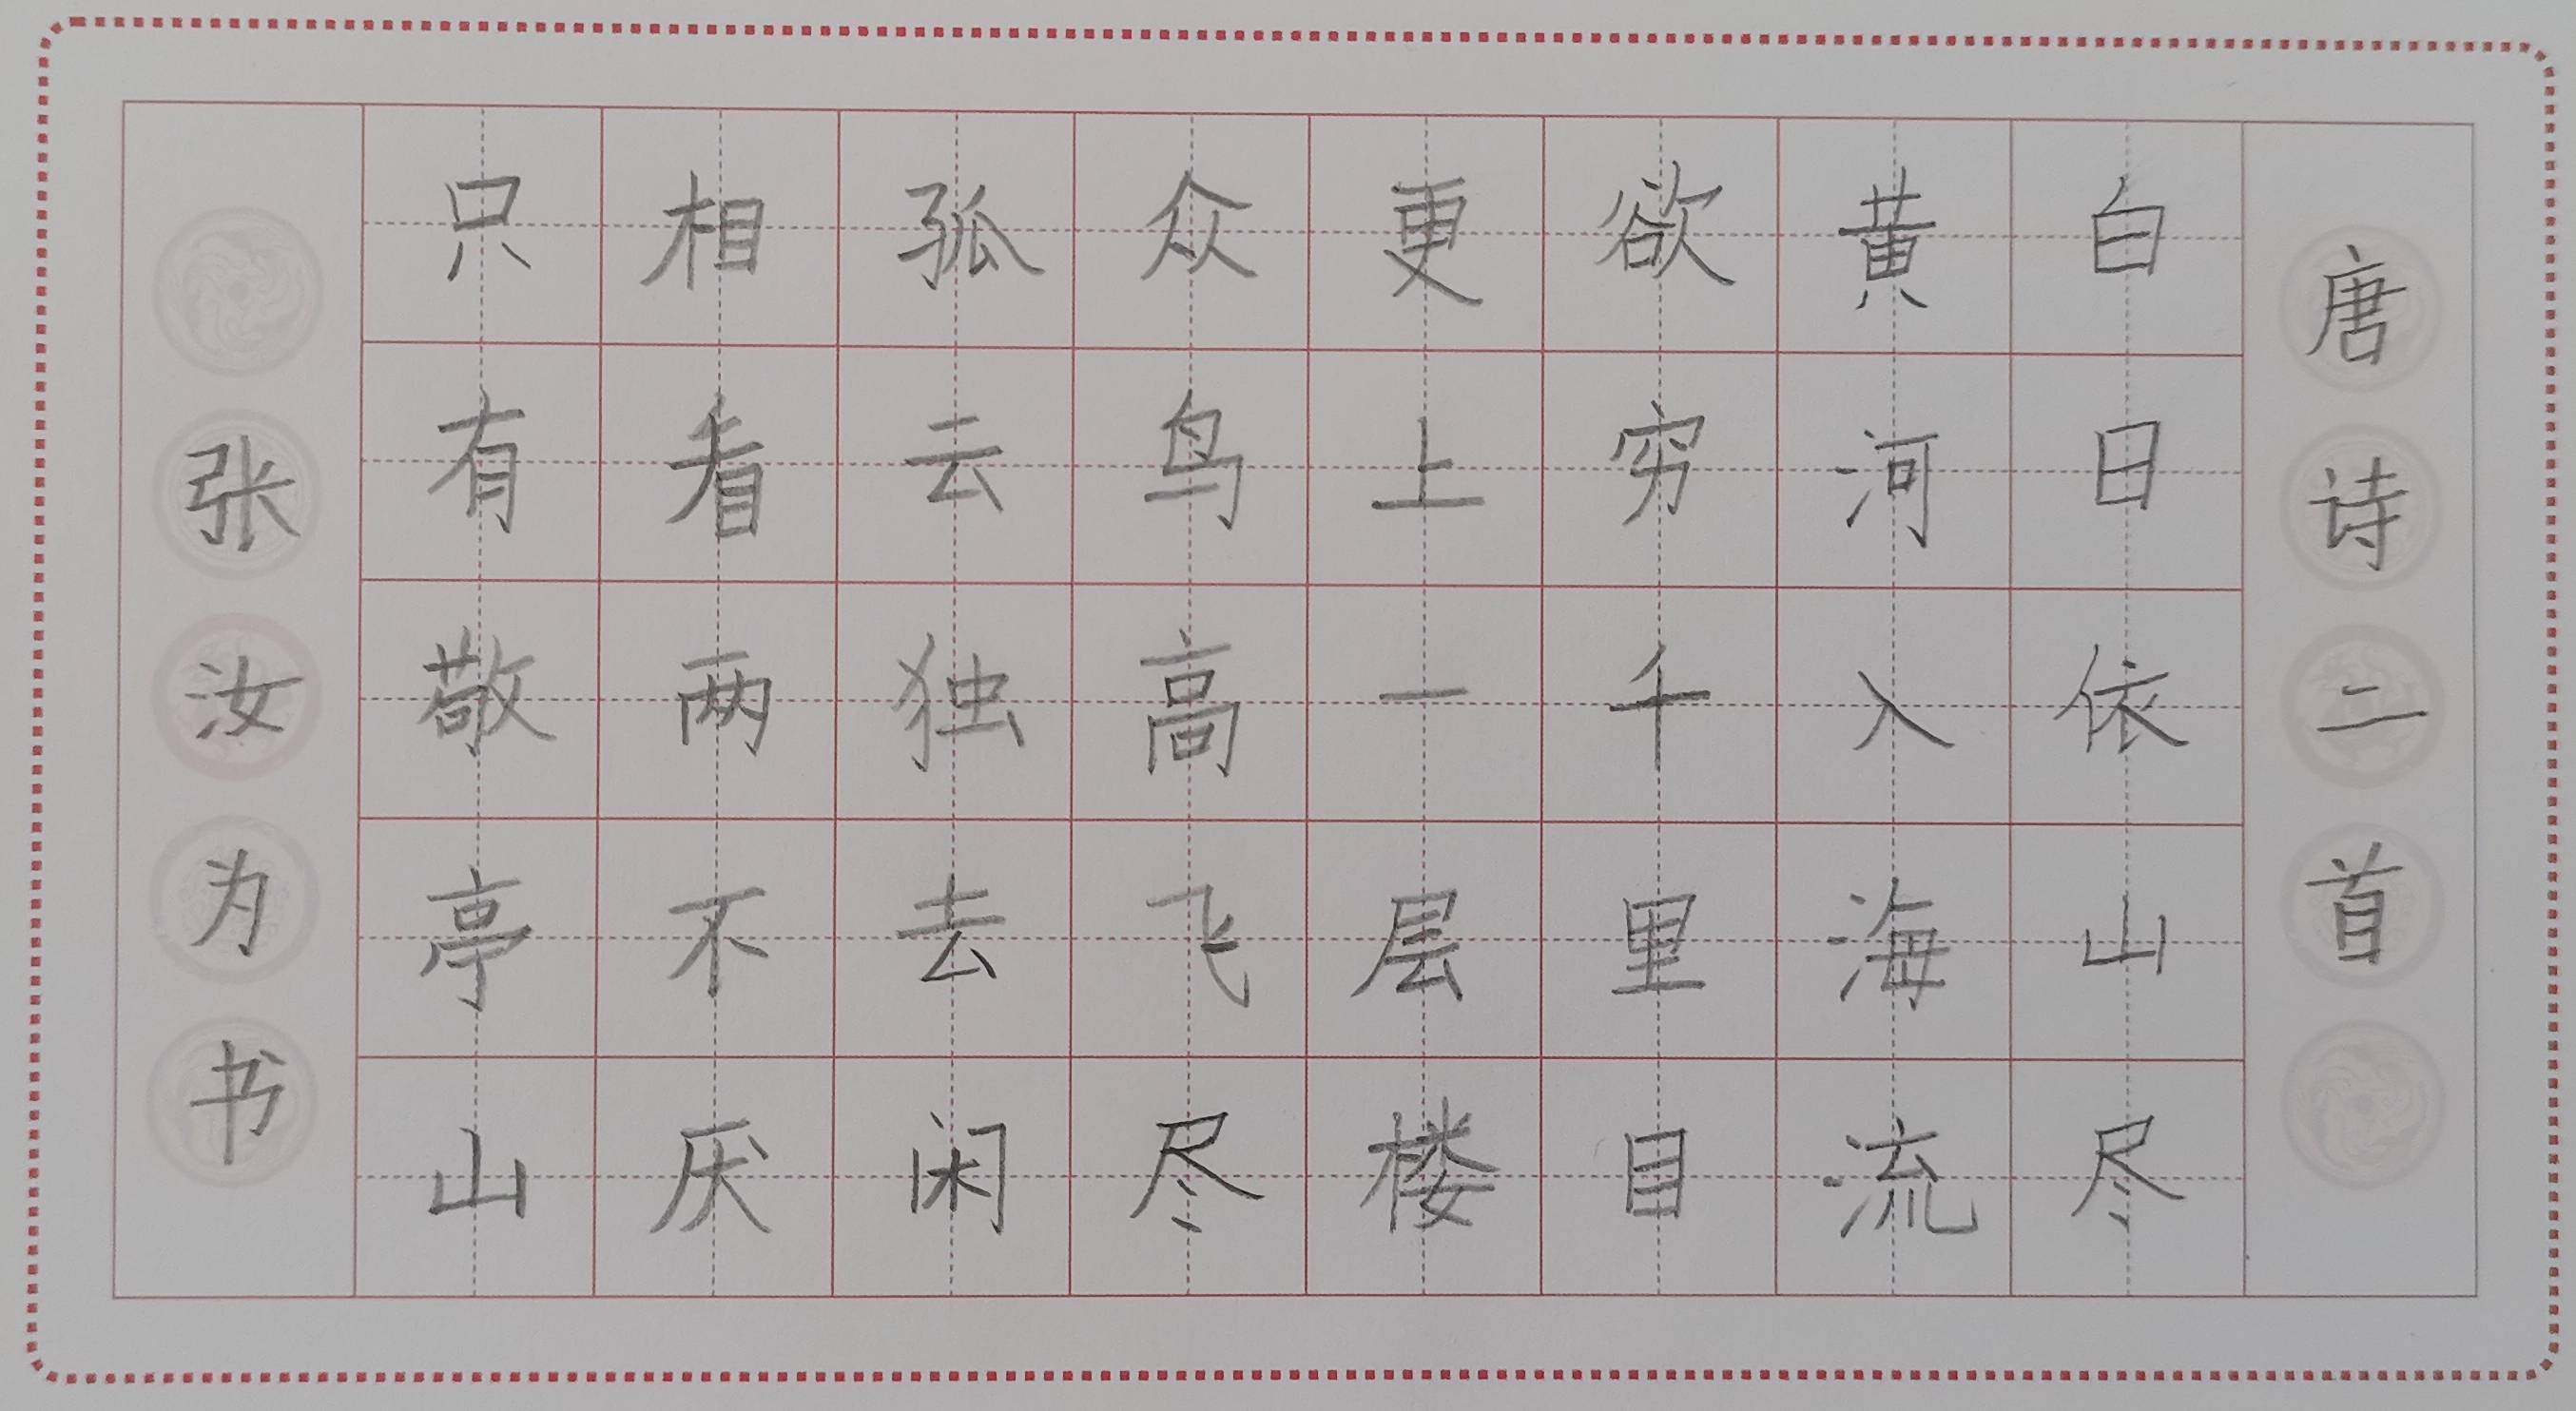 唐诗二首
白日依山尽
黄河入海流
欲穷千里目
更上一层楼
众鸟高飞尽
孤云独去闲
相看两不厌
只有敬亭山
张汝为书